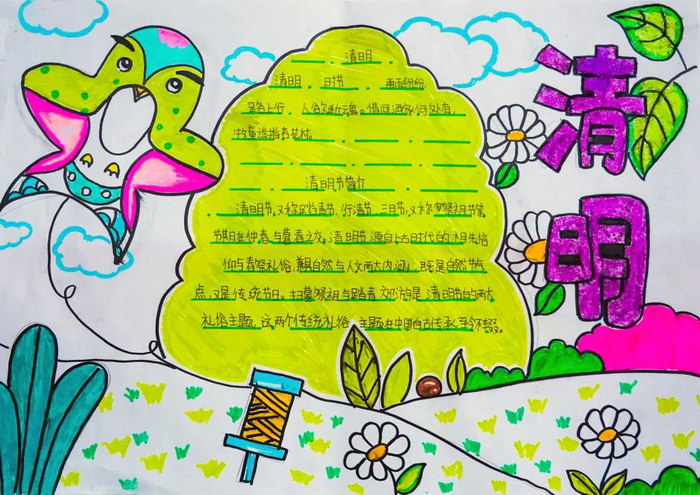 清明
清明
清明 日节 雨雨纷纷
路上行 人欲断魂。借问酒家何处有
牧童遥指杏花村。
清明节简介
清明节，又称踏青节、行清节、三月节，又称 祭祖节等，
节期在仲春与暮春之交。清明节源自上古时代的祖先信
仰与春祭礼俗，兼具自然与人文两大内涵，既是自然节气
点，又是传统节日。扫墓祭祖与踏青郊游是清明节的两大
礼俗主题，这两个传统礼俗主题在中国自古传承，至今不辍。